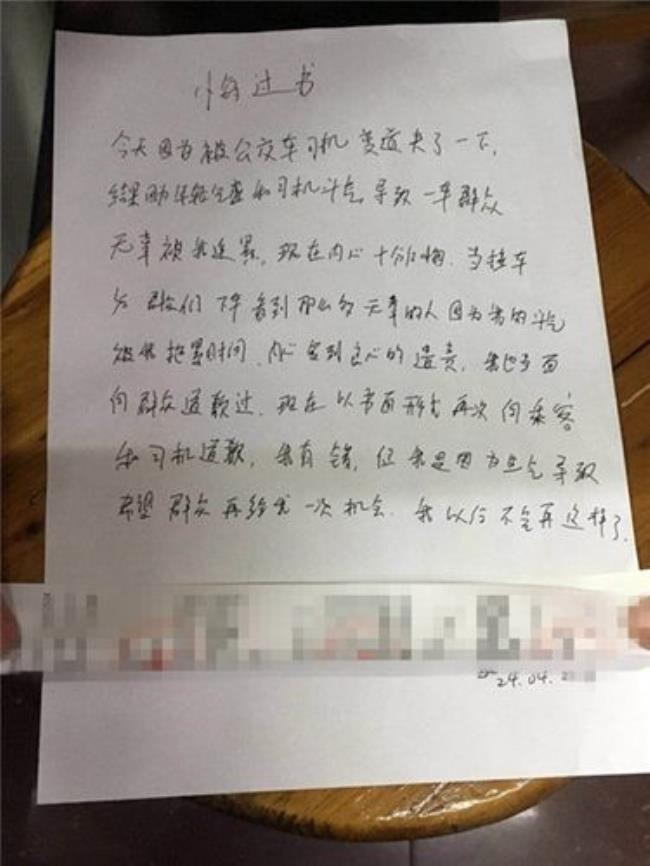 悔过书
今天因为被公交车司机变道夹了一下,
结果年轻气盛和司机斗气,导致一车群众
无辜被我连累,现在内心十分后悔.当挂车
后 群众们下车看到那么多无辜的人因为我的斗气
被我拖累时间.内心受到良心的遣责,我也当面
向群众道歉过.现在以书面形式再次向乘客
和司机道歉,我有错,但我是因为生气导致
希望群众再给我一次机会.我以后不会再这样了.
24.04.2